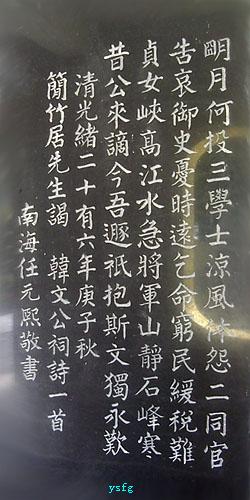 朙月何投三學士涼風休怨二同官
告哀御史憂時遠乞命窮民緩稅難
貞女峽高江水急將軍山靜石峰寒
昔公來謫今吾遯祇抱斯文獨永歎
清光緒二十有六年庚子秋
簡竹居先生謁 韓文公祠詩一首
南海任元熙敬書
ysfg